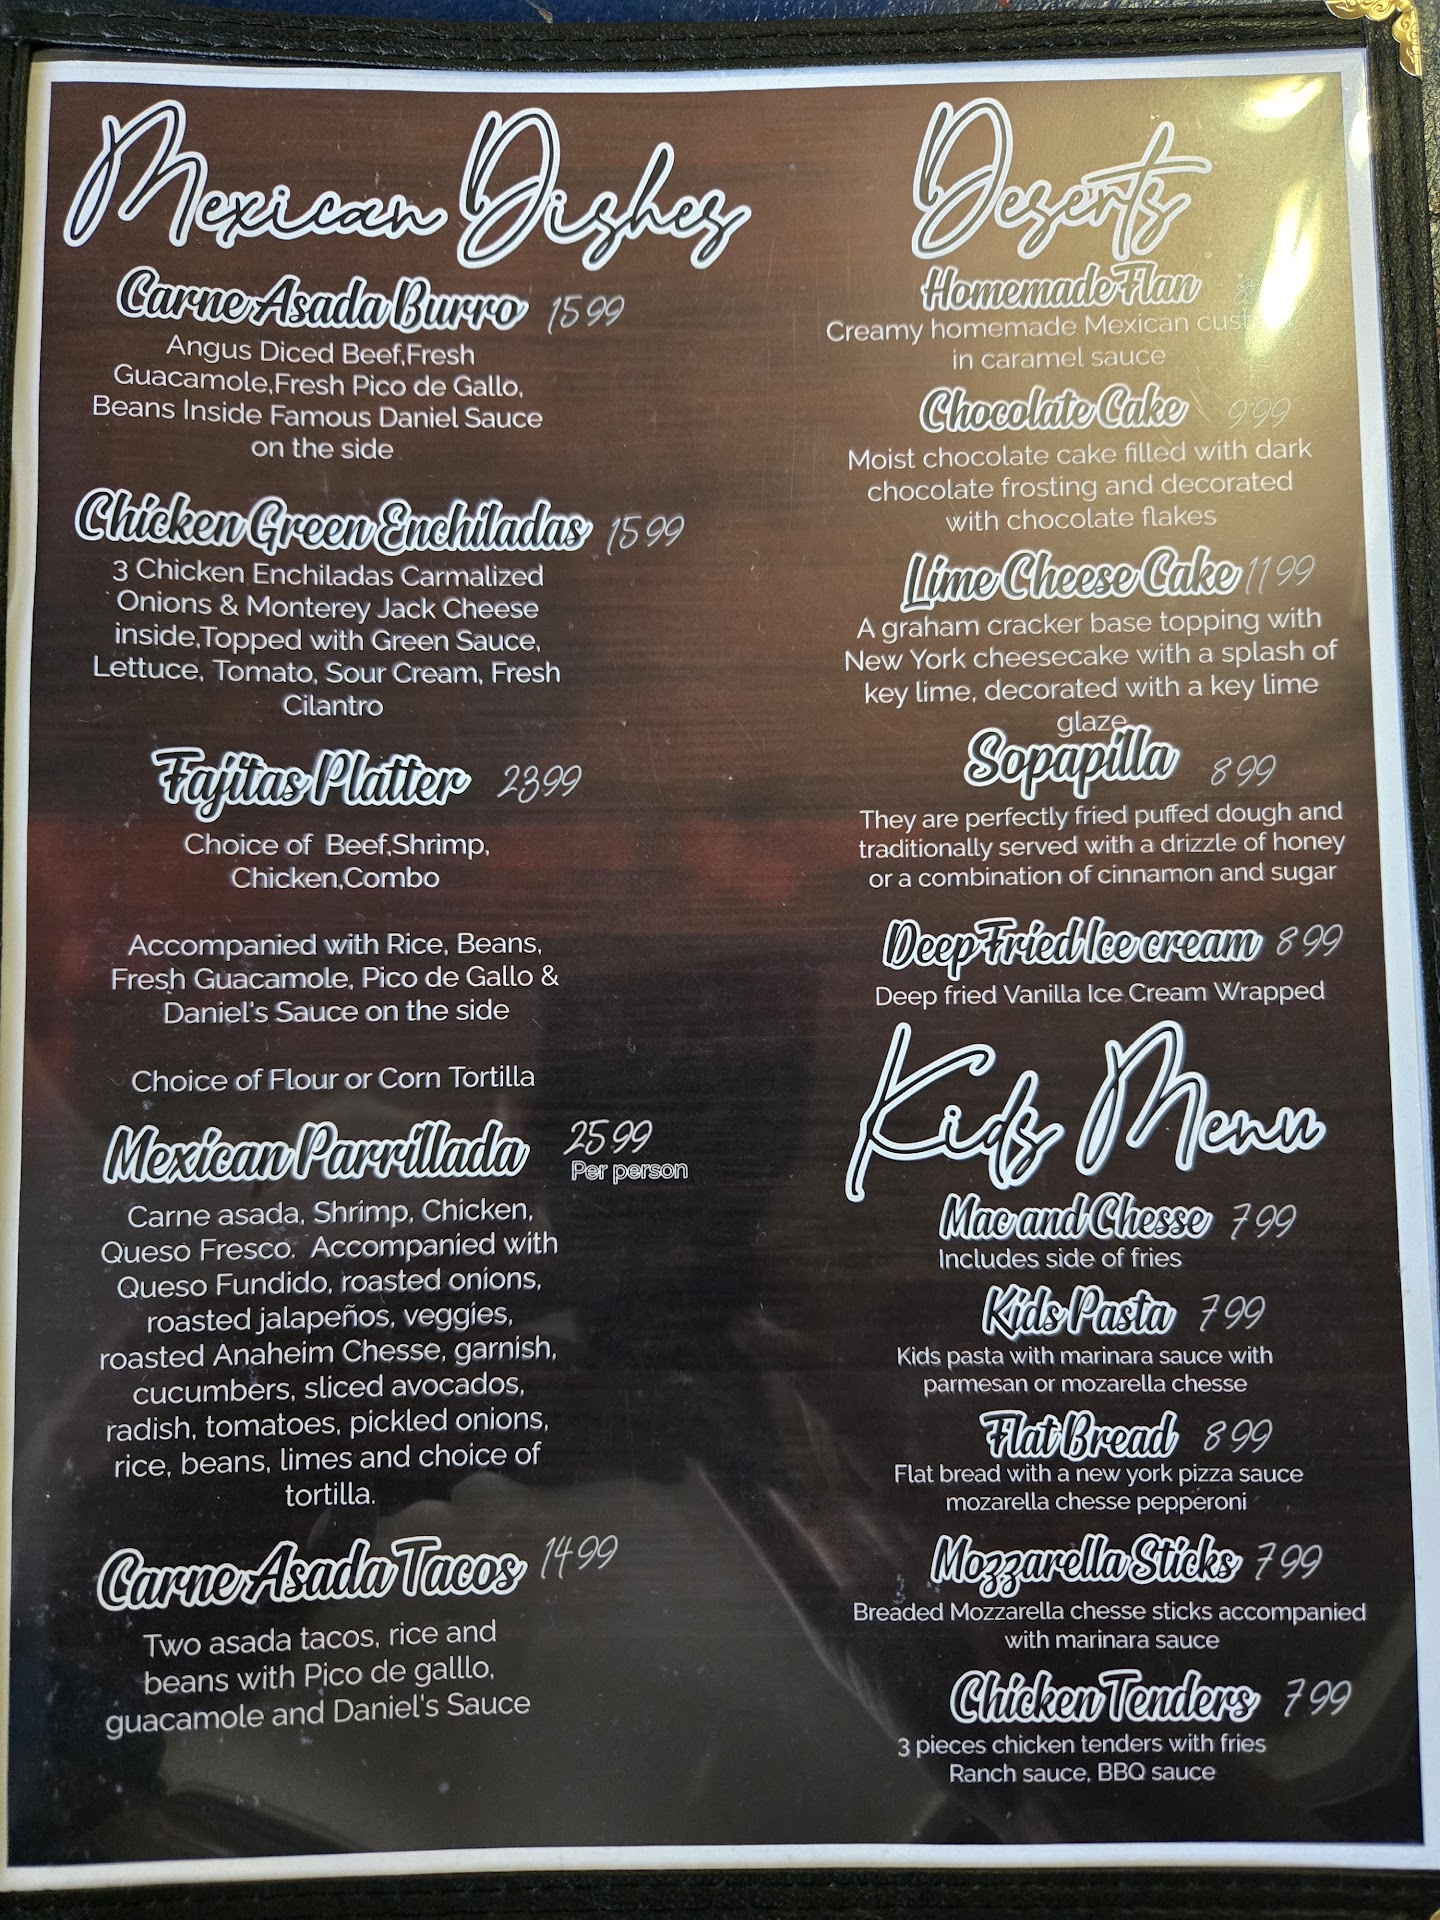 Mexican Dishes
Carne Asada Burro 15.99
Angus Diced Beef,Fresh
Guacamole,Fresh Pico de Gallo,
Beans Inside Famous Daniel Sauce
on the side
Chicken Green Enchiladas 15.99
3 Chicken Enchiladas Carmalized
Onions & Monterey Jack Cheese
inside,Topped with Green Sauce,
Lettuce, Tomato, Sour Cream, Fresh
Cilantro
Fajitas Platter 23.99
Choice of Beef,Shrimp,
Chicken,Combo
Accompanied with Rice, Beans,
Fresh Guacamole, Pico de Gallo &
Daniel's Sauce on the side
Choice of Flour or Corn Tortilla
Mexican Parrillada 25.99
Per person
Carne asada, Shrimp, Chicken,
Queso Fresco. Accompanied with
Queso Fundido, roasted onions,
roasted jalapeños, veggies,
roasted Anaheim Chesse, garnish,
cucumbers, sliced avocados,
radish, tomatoes, pickled onions,
rice, beans, limes and choice of
tortilla.
Carne Asada Tacos 14.99
Two asada tacos, rice and
beans with Pico de galllo,
guacamole and Daniel's Sauce
Deserts
Homemade Flan
Creamy homemade Mexican
in caramel sauce
Chocolate Cake 9.99
Moist chocolate cake filled with dark
chocolate frosting and decorated
with chocolate flakes
Lime Cheese Cake 11.99
A graham cracker base topping with
New York cheesecake with a splash of
key lime, decorated with a key lime
glaze
Sopapilla 8.99
They are perfectly fried puffed dough and
traditionally served with a drizzle of honey
or a combination of cinnamon and sugar
Deep Fried Ice cream 8.99
Deep fried Vanilla Ice Cream Wrapped
Kids Menu
Mac and Chesse 7.99
Includes side of fries
Kids Pasta 7.99
Kids pasta with marinara sauce with
parmesan or mozarella chesse
Flat Bread 8.99
Flat bread with a new york pizza sauce
mozarella chesse pepperoni
Mozzarella Sticks 7.99
Breaded Mozzarella chesse sticks accompanied
with marinara sauce
Chicken Tenders 7.99
3 pieces chicken tenders with fries
Ranch sauce, BBQ sauce